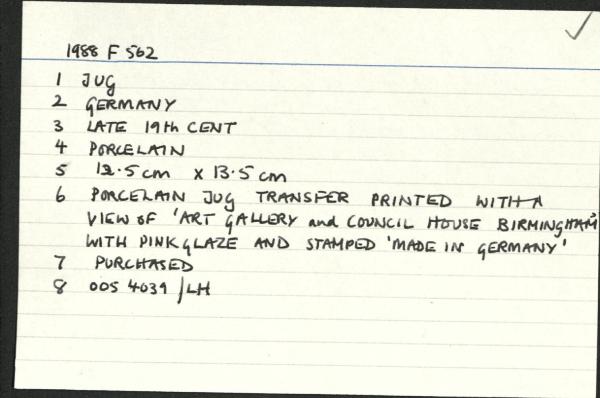 1988 F 562
1 JUG
2 GERMANY
3 LATE 19th CENT
4 PORCELAIN
5 12.5cm x 13.5cm
6 PORCELAIN JUG TRANSFER PRINTED WITH A
VIEW OF 'ART GALLERY and COUNCIL HOUSE BIRMINGHAM'
WITH PINK GLAZE AND STAMPED 'MADE IN GERMANY'
7 PURCHASED
8 005 4039 / LH